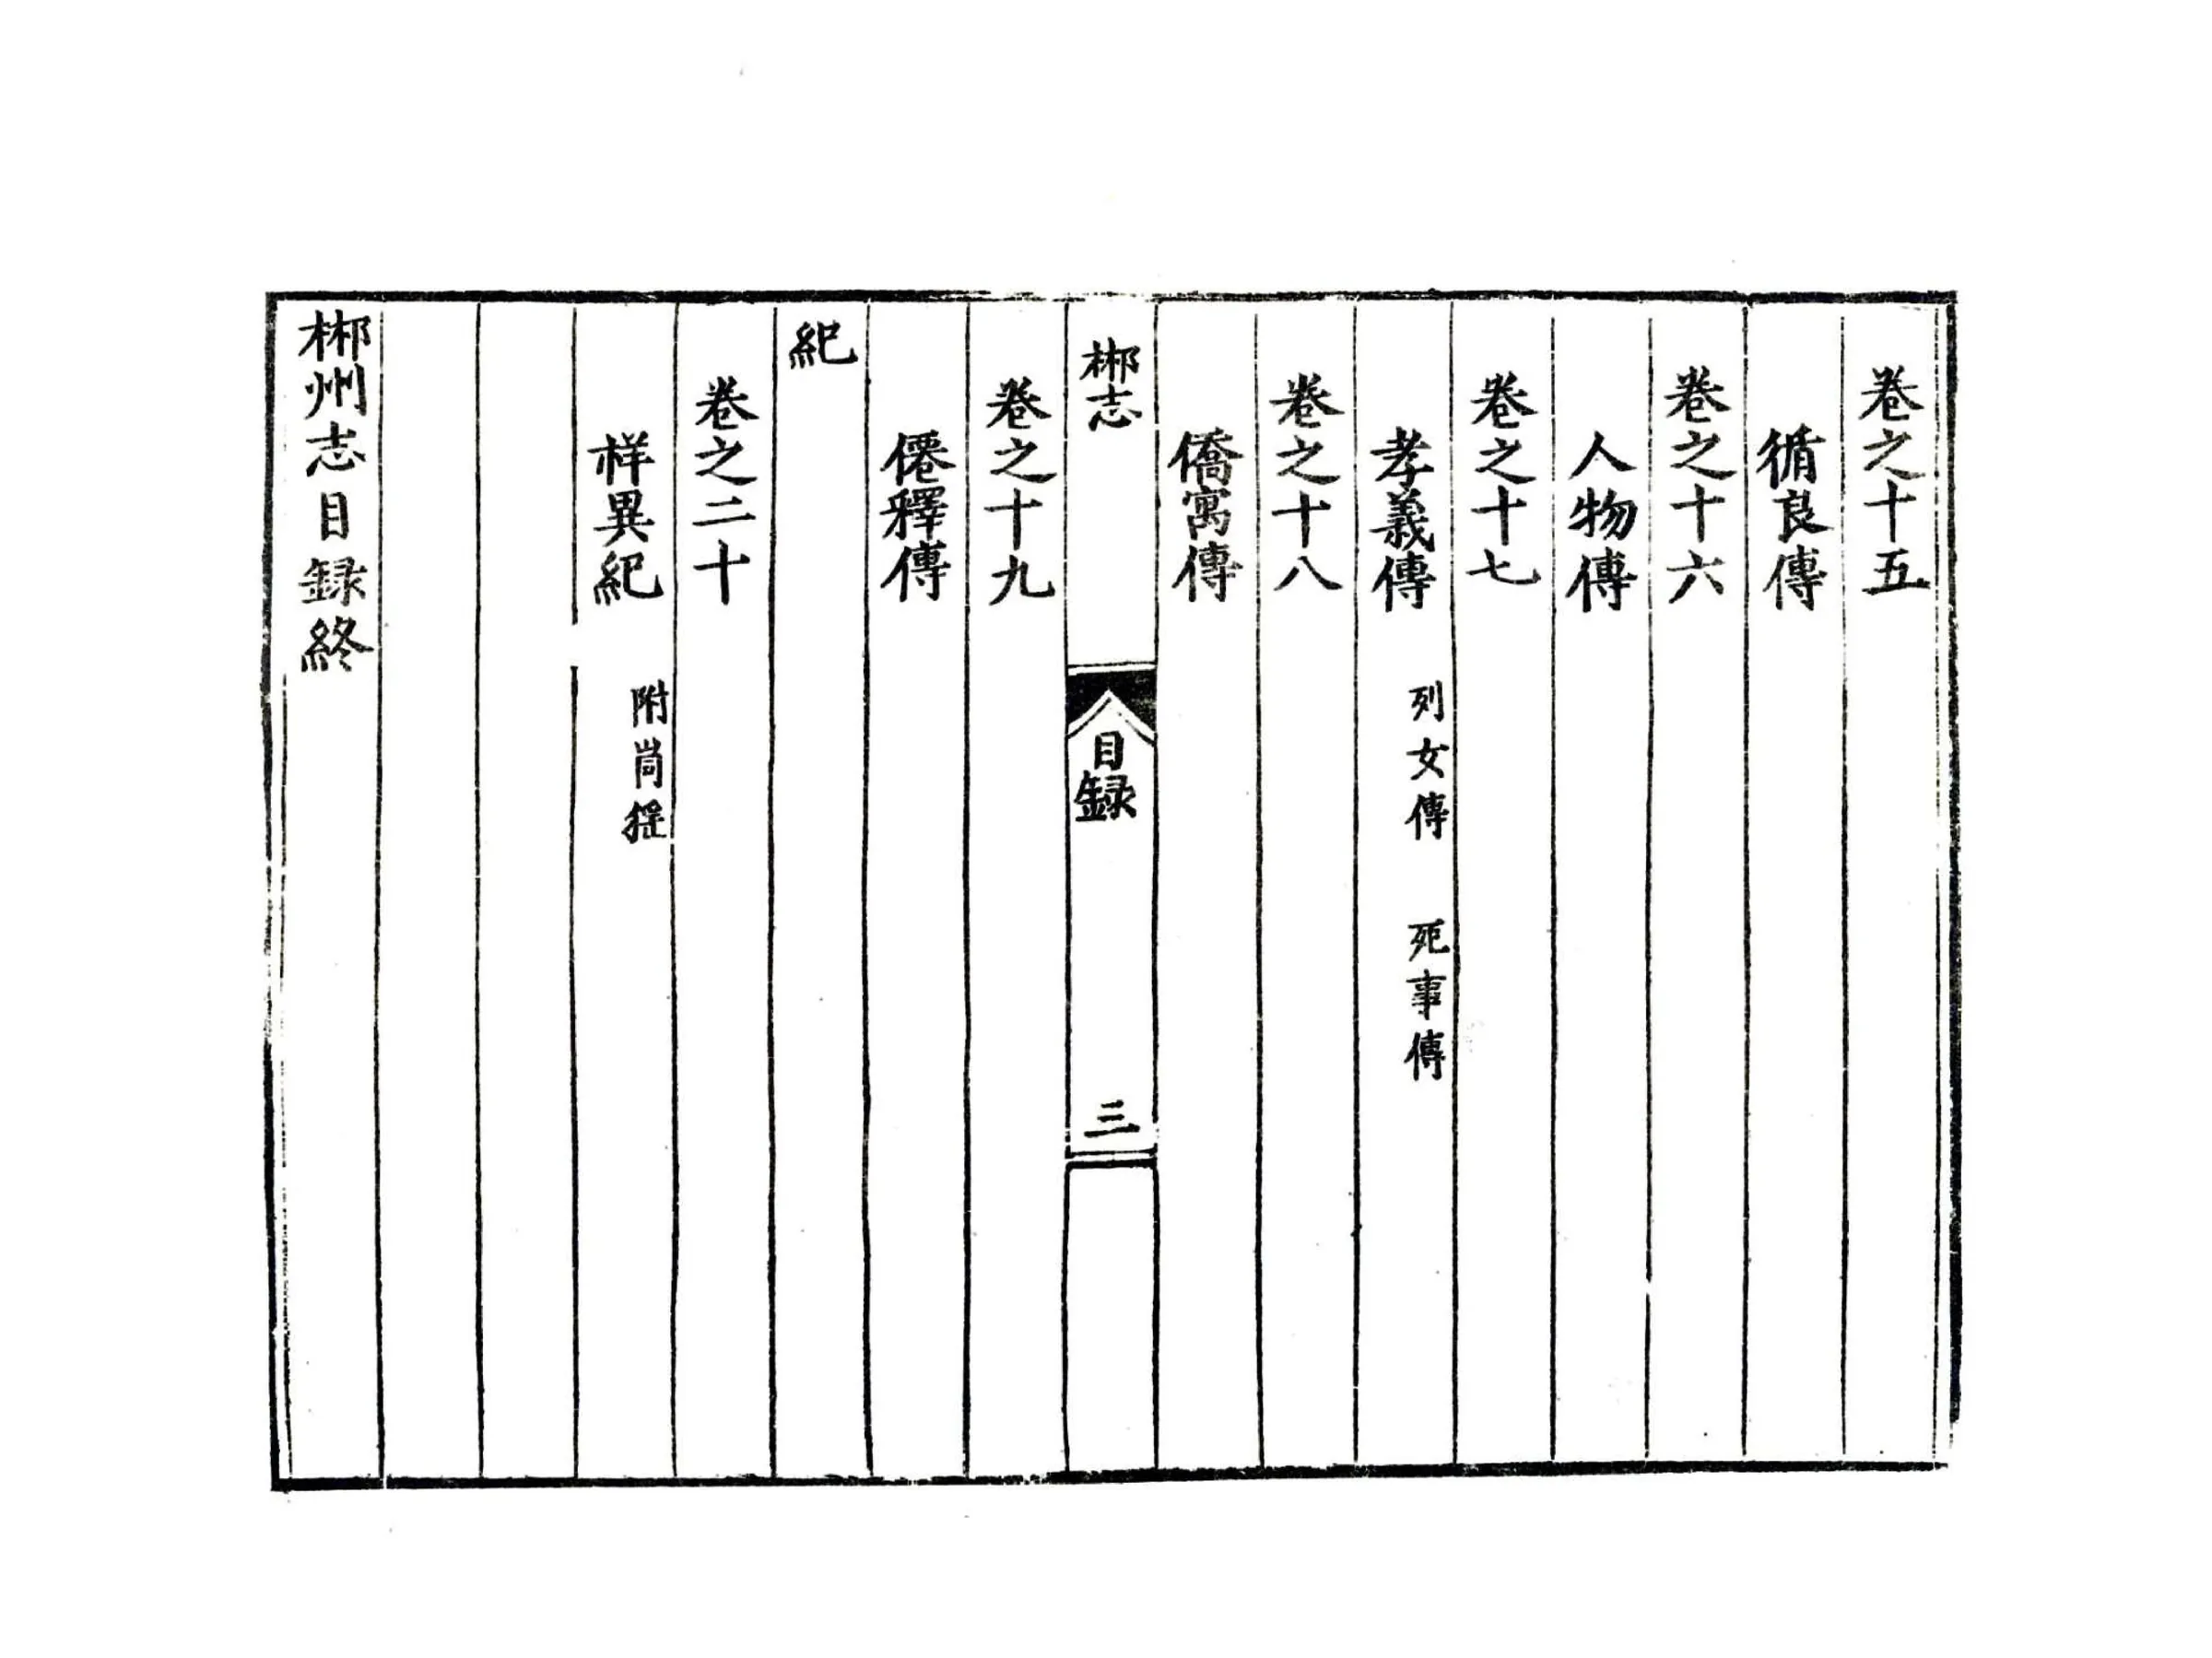 卷之十五
循良傳
卷之十六
人物傳
卷之十七
孝義傳 列女傳 死事傳
卷之十八
僑寓傳
郴志 目録 三
卷之十九
僊釋傳
紀
卷之二十
祥異紀 附峝猺
郴州志目録終